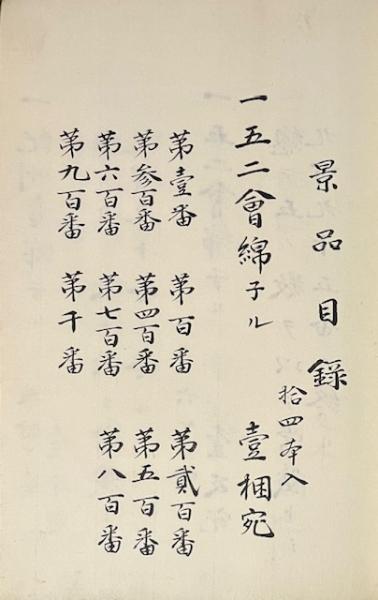 景品目録
拾四本入
一五二會綿子ル 壹梱宛
第壹番 第百番 第貳百番
第参百番 第四百番 第五百番
第六百番 第七百番 第八百番
第九百番 第千番